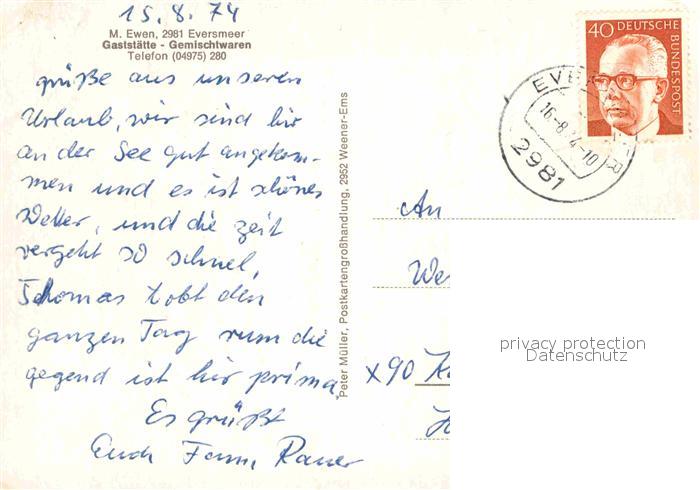 15.8.74
M. Ewen, 2981 Eversmeer
Gaststätte - Gemischtwaren
Telefon (04975) 280
grüße aus unseren
Urlaub, wir sind hir
an der See gut angekom-
men und es ist schönes
Wetter, und die zeit
vergeht so schnel,
Thomas tobt den
ganzen Tag rum die
gegend ist hir prima
Es grüßt
Euch Fam.
Peter Müller, Postkartengroßhandlung, 2952 Weener-Ems
40 DEUTSCHE
BUNDESPOST
16-8.74-10
2981
An
We
x90
privacy protection
Datenschutz